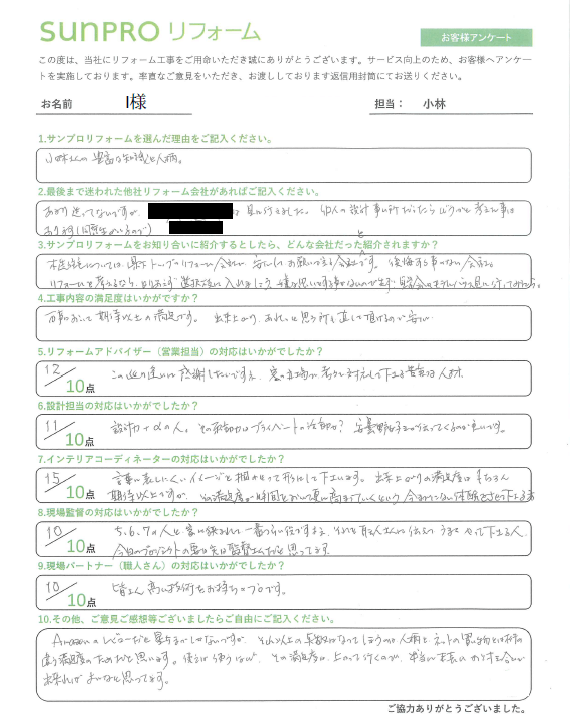 SUNPRO リフォーム
お客様アンケート
この度は、当社にリフォーム工事をご用命いただき誠にありがとうございます。サービス向上のため、お客様へアンケー
トを実施しております。率直なご意見をいただき、お渡ししております返信用封筒にてお送りください。
お名前 I様 担当： 小林
1.サンプロリフォームを選んだ理由をご記入ください。
小林さんの豊富な知識と人柄。
2.最後まで迷われた他社リフォーム会社があればご記入ください。
あまり迷ってないですが、 見に行きました。 知人の設計事ム所だったらどうかと考えた事は
あります
3.サンプロリフォームをお知り合いに紹介するとしたら、どんな会社だった紹介されますか？
と
安心してお願い出来る会社です。 後悔する事のない会社。
リフォームを考えるなら、
4.工事内容の満足度はいかがですか？
万事において期待以上の満足です。 出来上がり、あれっ、と思う所も直して頂けるので安心
5.リフォームアドバイザー（営業担当）の対応はいかがでしたか？
12/10点 この巡り逢いには感謝しかないですネ。 客の立場で考えて対応して下さる貴重な人材
6.設計担当の対応はいかがでしたか？
11/10点 設計力+αの人。 その
7.インテリアコーディネーターの対応はいかがでしたか？
15/10点 言葉に表しにくいイメージを掴みとって形にして下さいます。 出来上がりの満足度はもちろん
期待以上ですが、 その満足度が時間をおいて更に高まっていくという
8.現場監督の対応はいかがでしたか？
10/10点 5、6、7の人と客に挟まれて一番つらい役ですよネ。 それを職人さんに伝えつつうまくやって下さる人、
今回のプロジェクトの要は実は監督さんだと思ってます
9.現場パートナー（職人さん）の対応はいかがでしたか？
10/10点 皆さん高い技術をお持ちのプロです。
10.その他、ご意見ご感想等ございましたらご自由にご記入ください。
Amazonのレビューだと星5つしかないですが、 それ以上の点数になってしまうのは人柄と、ネットの買い物とは桁の
違う満足度のためだと思います。 その満足度は上がって行くので、 本当に末長いおつき合いが
出来ればよいなと思ってます。
ご協力ありがとうございました。